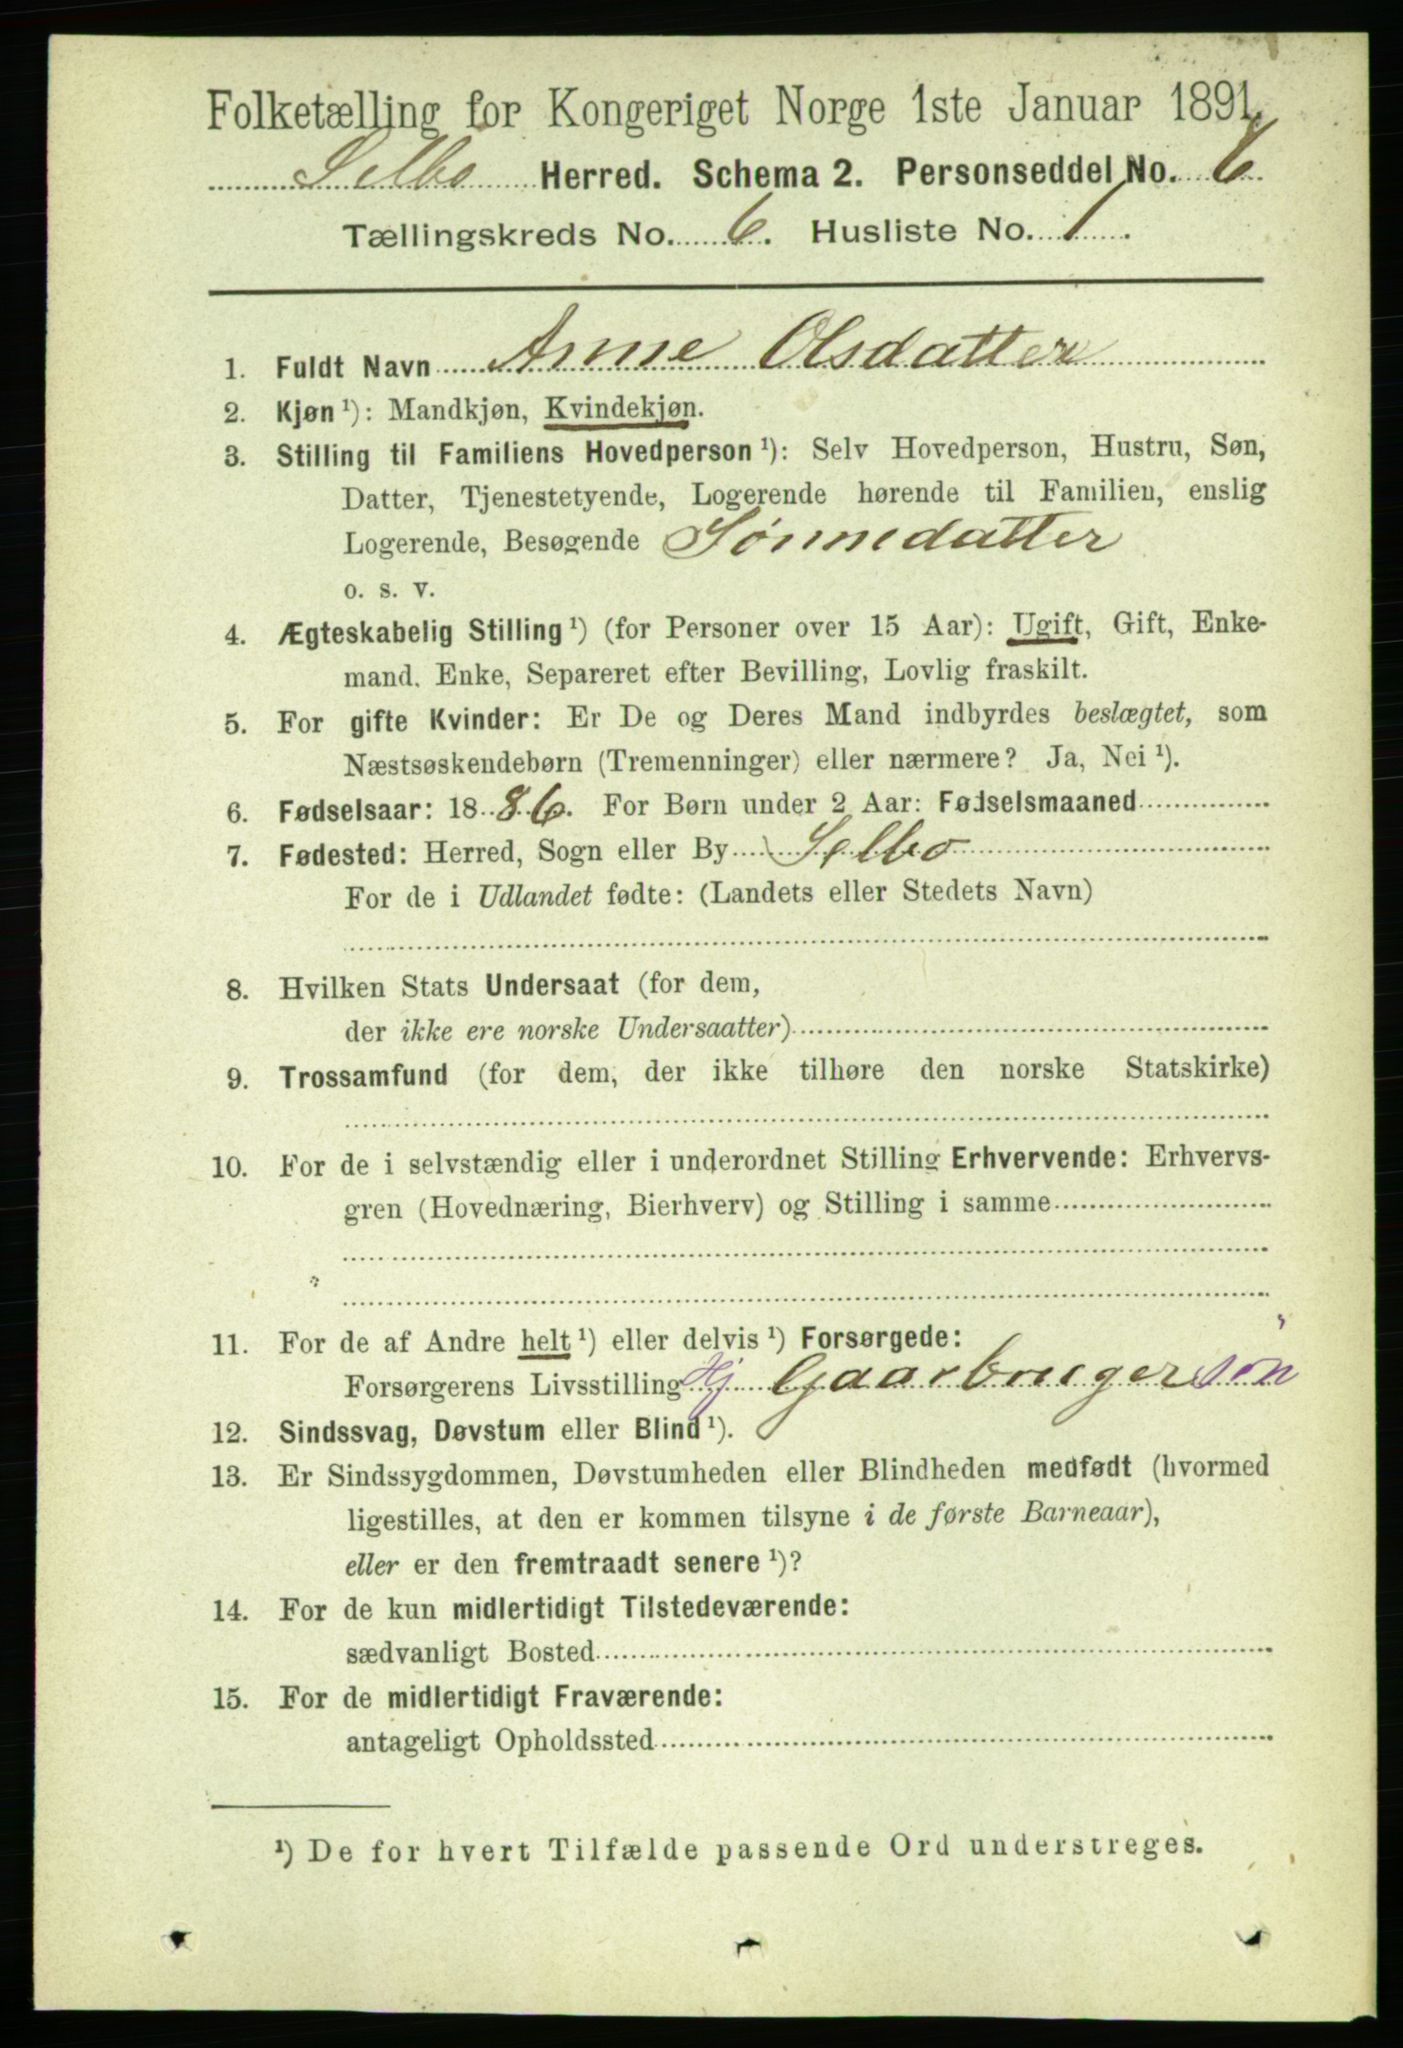 Folketælling for Kongeriget Norge 1ste Januar 1891.
Selbo Herred. Schema 2. Personseddel No. 6
Tællingskreds No. 6. Husliste No. 1.
1. Fuldt Navn Anne Olsdatter
2. Kjøn ¹): Mandkjøn, Kvindekjøn.
3. Stilling til Familiens Hovedperson ¹): Selv Hovedperson, Hustru, Søn,
Datter, Tjenestetyende, Logerende hørende til Familien, enslig
Logerende, Besøgende Sønnedatter
o. s. v.
4. Ægteskabelig Stilling ¹) (for Personer over 15 Aar): Ugift, Gift, Enke-
mand. Enke, Separeret efter Bevilling, Lovlig fraskilt.
5. For gifte Kvinder: Er De og Deres Mand indbyrdes beslægtet, som
Næstsøskendebørn (Tremenninger) eller nærmere? Ja, Nei ¹).
6. Fødselsaar: 1886. For Børn under 2 Aar: Fødselsmaaned
7. Fødested: Herred, Sogn eller By Selbo
For de i Udlandet fødte: (Landets eller Stedets Navn)
8. Hvilken Stats Undersaat (for dem,
der ikke ere norske Undersaatter)
9. Trossamfund (for dem, der ikke tilhøre den norske Statskirke)
10. For de i selvstændig eller i underordnet Stilling Erhvervende: Erhvervs-
gren (Hovednæring, Bierhverv) og Stilling i samme
11. For de af Andre helt ¹) eller delvis ¹) Forsørgede:
Forsørgerens Livsstilling Hj Gaarbrugersøn
12. Sindssvag, Døvstum eller Blind ¹).
13. Er Sindssygdommen, Døvstumheden eller Blindheden medfødt (hvormed
ligestilles, at den er kommen tilsyne i de første Barneaar),
eller er den fremtraadt senere ¹)?
14. For de kun midlertidigt Tilstedeværende:
sædvanligt Bosted
15. For de midlertidigt Fraværende:
antageligt Opholdssted
¹) De for hvert Tilfælde passende Ord understreges.